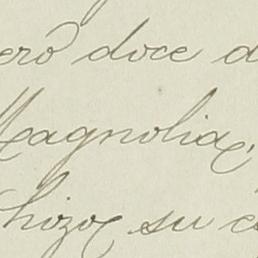 ero doce d
Magnolia,
hizo su c